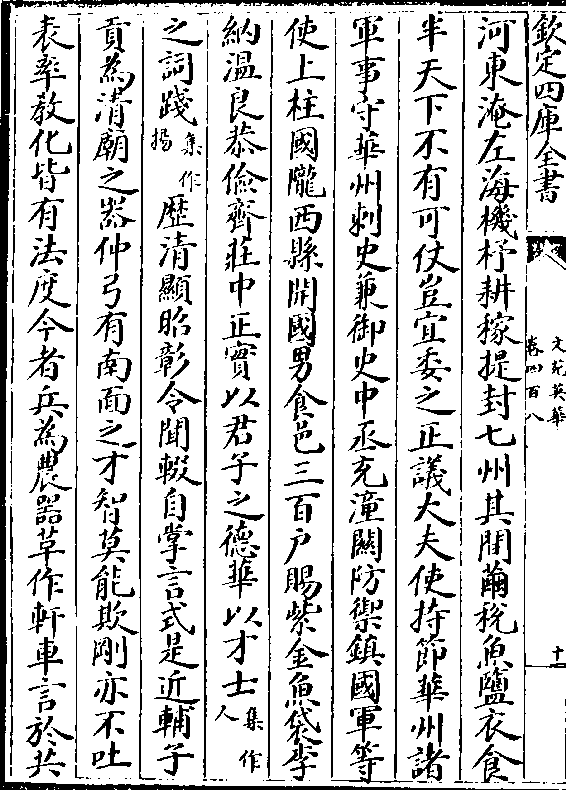 欽定四庫全書
文苑英華
卷四百八
十一
河東淹左海機杼耕稼提封七州其閒繭稅魚鹽衣食
半天下不有可仗豈宜委之正議大夫使持節華州諸
軍事守華州刺史兼御史中丞充潼關防禦鎮國軍等
使上柱國隴西縣開國男食邑三百户賜紫金魚袋李
納溫良恭儉齊莊中正實以君子之德華以才士集作人
之詞踐集作揚歷清顯昭彰令聞輟自掌言式是近輔子
貢為清廟之器仲弓有南面之才智莫能欺剛亦不吐
表率教化皆有法度今者兵為農器革作軒車言於共